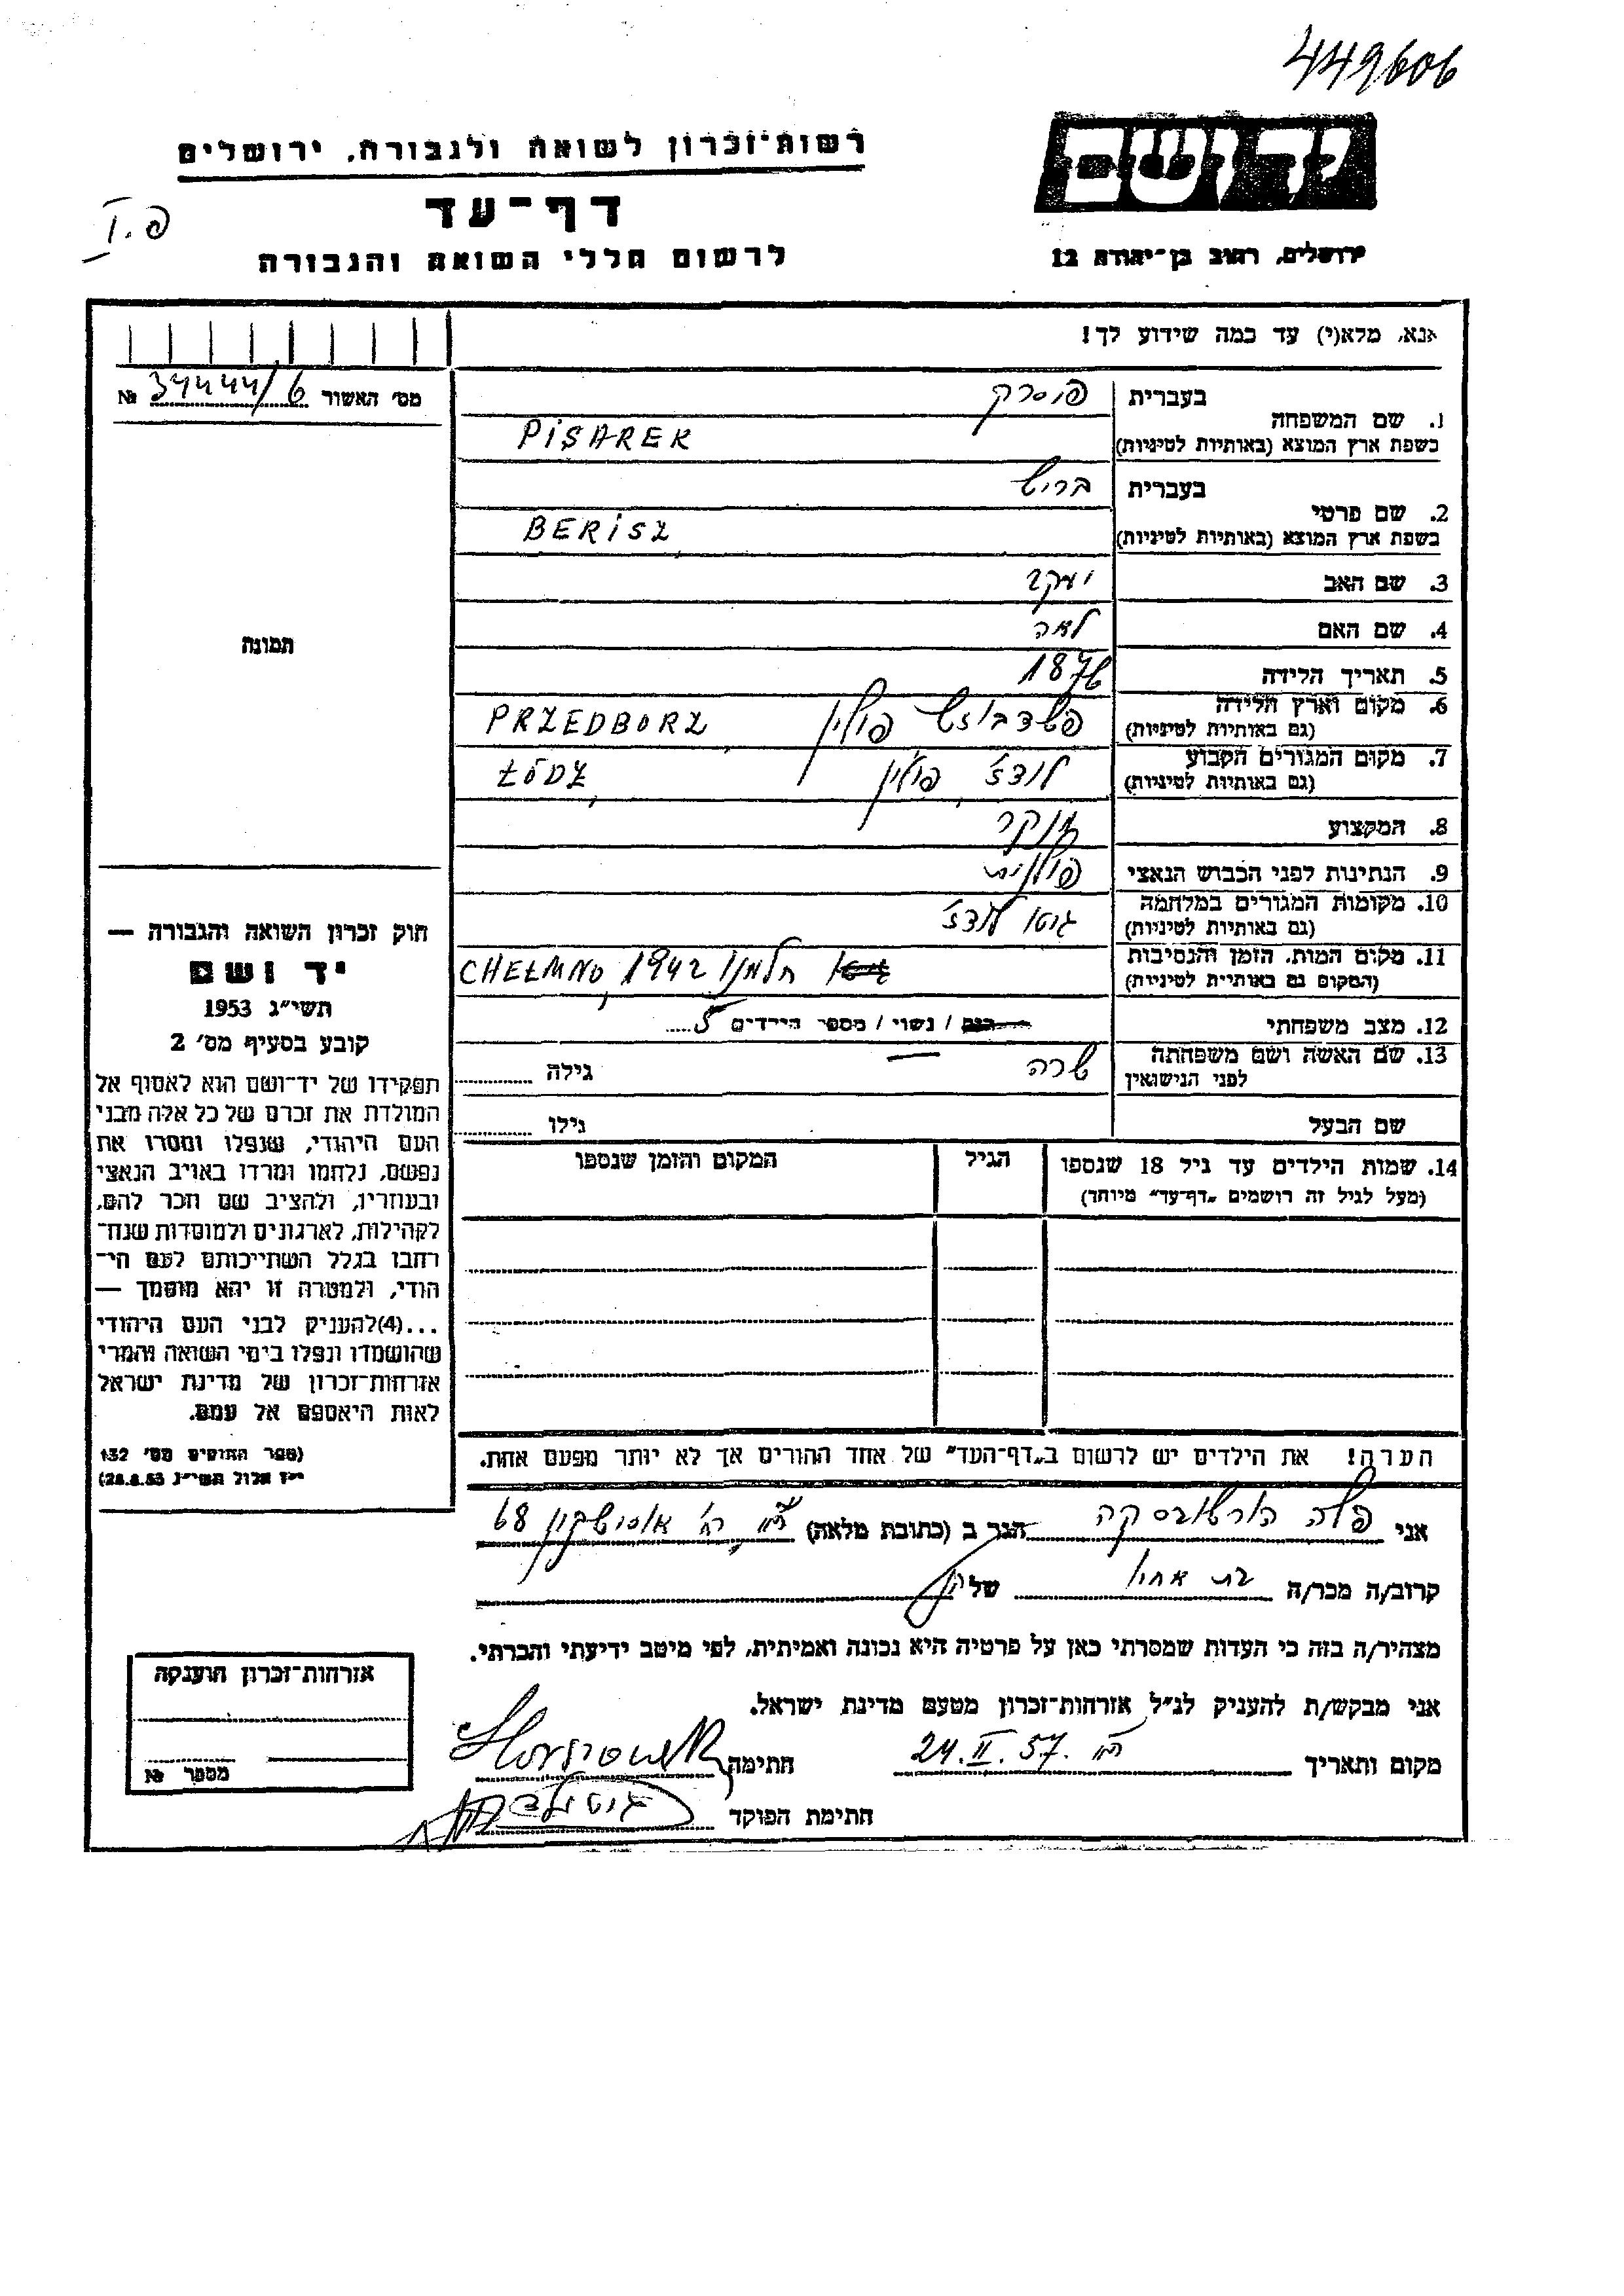 449606
יד ושם
ירושלים, רחוב בן־יהודה 12
רשות־זכרון לשואה ולגבורה, ירושלים
דף־עד
לרשום חללי השואה והגבורה
פ.I
אנא, מלא(י) עד כמה שידוע לך!
מס׳ האשור 34444/6 №
1. שם המשפחה
בעברית פיסרק
בשפת ארץ המוצא (באותיות לטיניות) PISAREK
2. שם פרטי
בעברית בריש
בשפת ארץ המוצא (באותיות לטיניות) BERISZ
3. שם האב יעקב
4. שם האם לאה
5. תאריך הלידה 1876
6. מקום וארץ הלידה
(גם באותיות לטיניות) פשדבוז׳ש פולין PRZEDBORZ
7. מקום המגורים הקבוע
(גם באותיות לטיניות) לודז׳ פולין ŁÓDZ
8. המקצוע
9. הנתינות לפני הכבוש הנאצי פולנית
10. מקומות המגורים במלחמה
(גם באותיות לטיניות) גיטו לודז׳
11. מקום המות, הזמן והנסיבות
(המקום גם באותיות לטיניות) חלמנו 1942 CHEŁMNO
12. מצב משפחתי רווק / נשוי / מספר הילדים 5
13. שם האשה ושם משפחתה
לפני הנישואין שרה גילה
שם הבעל גילו
14. שמות הילדים עד גיל 18 שנספו
(מעל לגיל זה רושמים „דף־עד״ מיוחד)
הגיל
המקום והזמן שנספו
הערה! את הילדים יש לרשום ב„דף־העד״ של אחד ההורים אך לא יותר מפעם אחת.
תמונה
חוק זכרון השואה והגבורה —
יד ושם
תשי״ג 1953
קובע בסעיף מס׳ 2
תפקידו של יד־ושם הוא לאסוף אל
המולדת את זכרם של כל אלה מבני
העם היהודי, שנפלו ומסרו את
נפשם, נלחמו ומרדו באויב הנאצי
ובעוזריו, ולהציב שם וזכר להם,
לקהילות, לארגונים ולמוסדות שנח־
רבו בגלל השתייכותם לעם הי־
הודי, ולמטרה זו יהא מוסמך —
...(4)להעניק לבני העם היהודי
שהושמדו ונפלו בימי השואה והמרי
אזרחות־זכרון של מדינת ישראל
לאות היאספם אל עמם.
(ספר החוקים מס׳ 132
י״ז אלול תשי״ג 28.8.53)
אני פלה הורשובסקה הגר ב (כתובת מלאה) רח׳ אוסישקין 68
קרוב/ה מכר/ה בת אחיו של
מצהיר/ה בזה כי העדות שמסרתי כאן על פרטיה היא נכונה ואמיתית, לפי מיטב ידיעתי והכרתי.
אני מבקש/ת להעניק לנ״ל אזרחות־זכרון מטעם מדינת ישראל.
מקום ותאריך 24.II.57 חתימה
חתימת הפוקד
אזרחות־זכרון הוענקה
מספר №